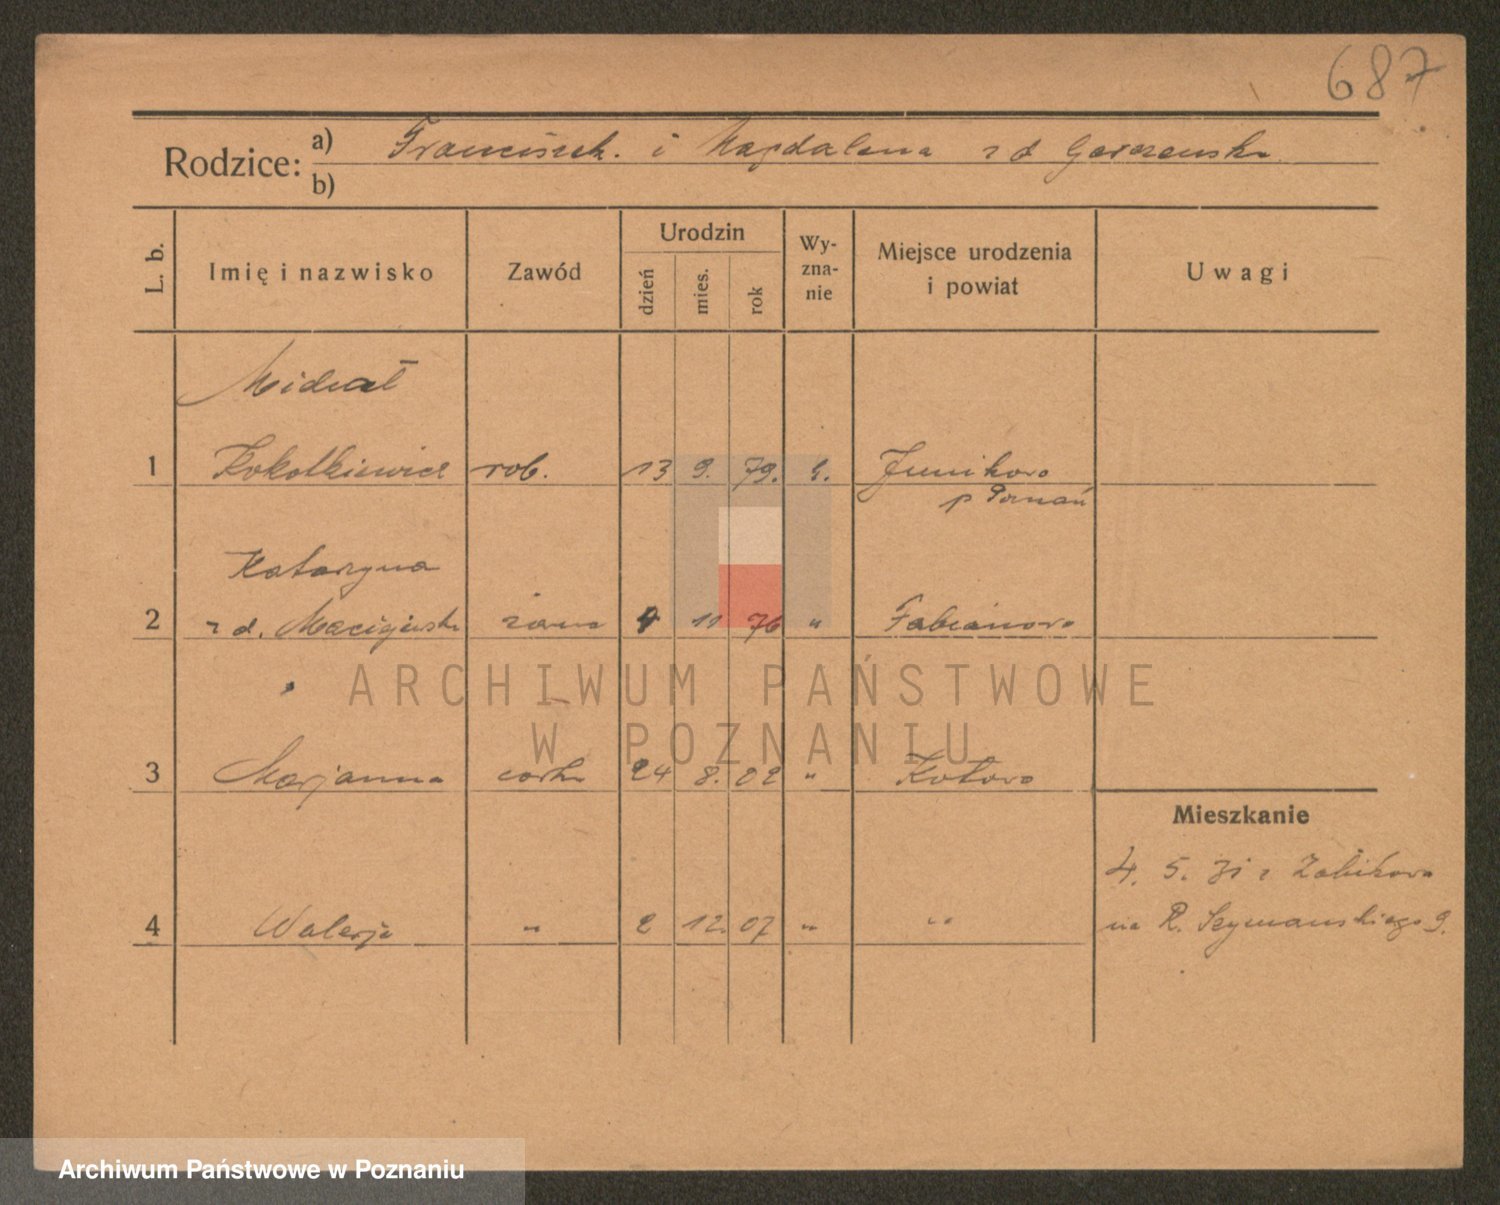 687
Rodzice: a) Franciszek. i Magdalena z d
b)
L. b. Imię i nazwisko Zawód Urodzin dzień mies. rok Wy-zna-nie Miejsce urodzenia i powiat Uwagi
Michał
1 Kokotkiewicz rob. 13 9. 79. Junikowo
p Poznań
Katarzyna
2 z d. żona 11 76 " Fabianowo
ARCHIWUM PAŃSTWOWE
W POZNANIU
3 Marjanna córka 24 8. 02 " Kotowo
Mieszkanie
4. 5. 31 z Żabikowa
4 Walerja " 2 12. 07 " "
na R. Szymańskiego 9.
Archiwum Państwowe w Poznaniu